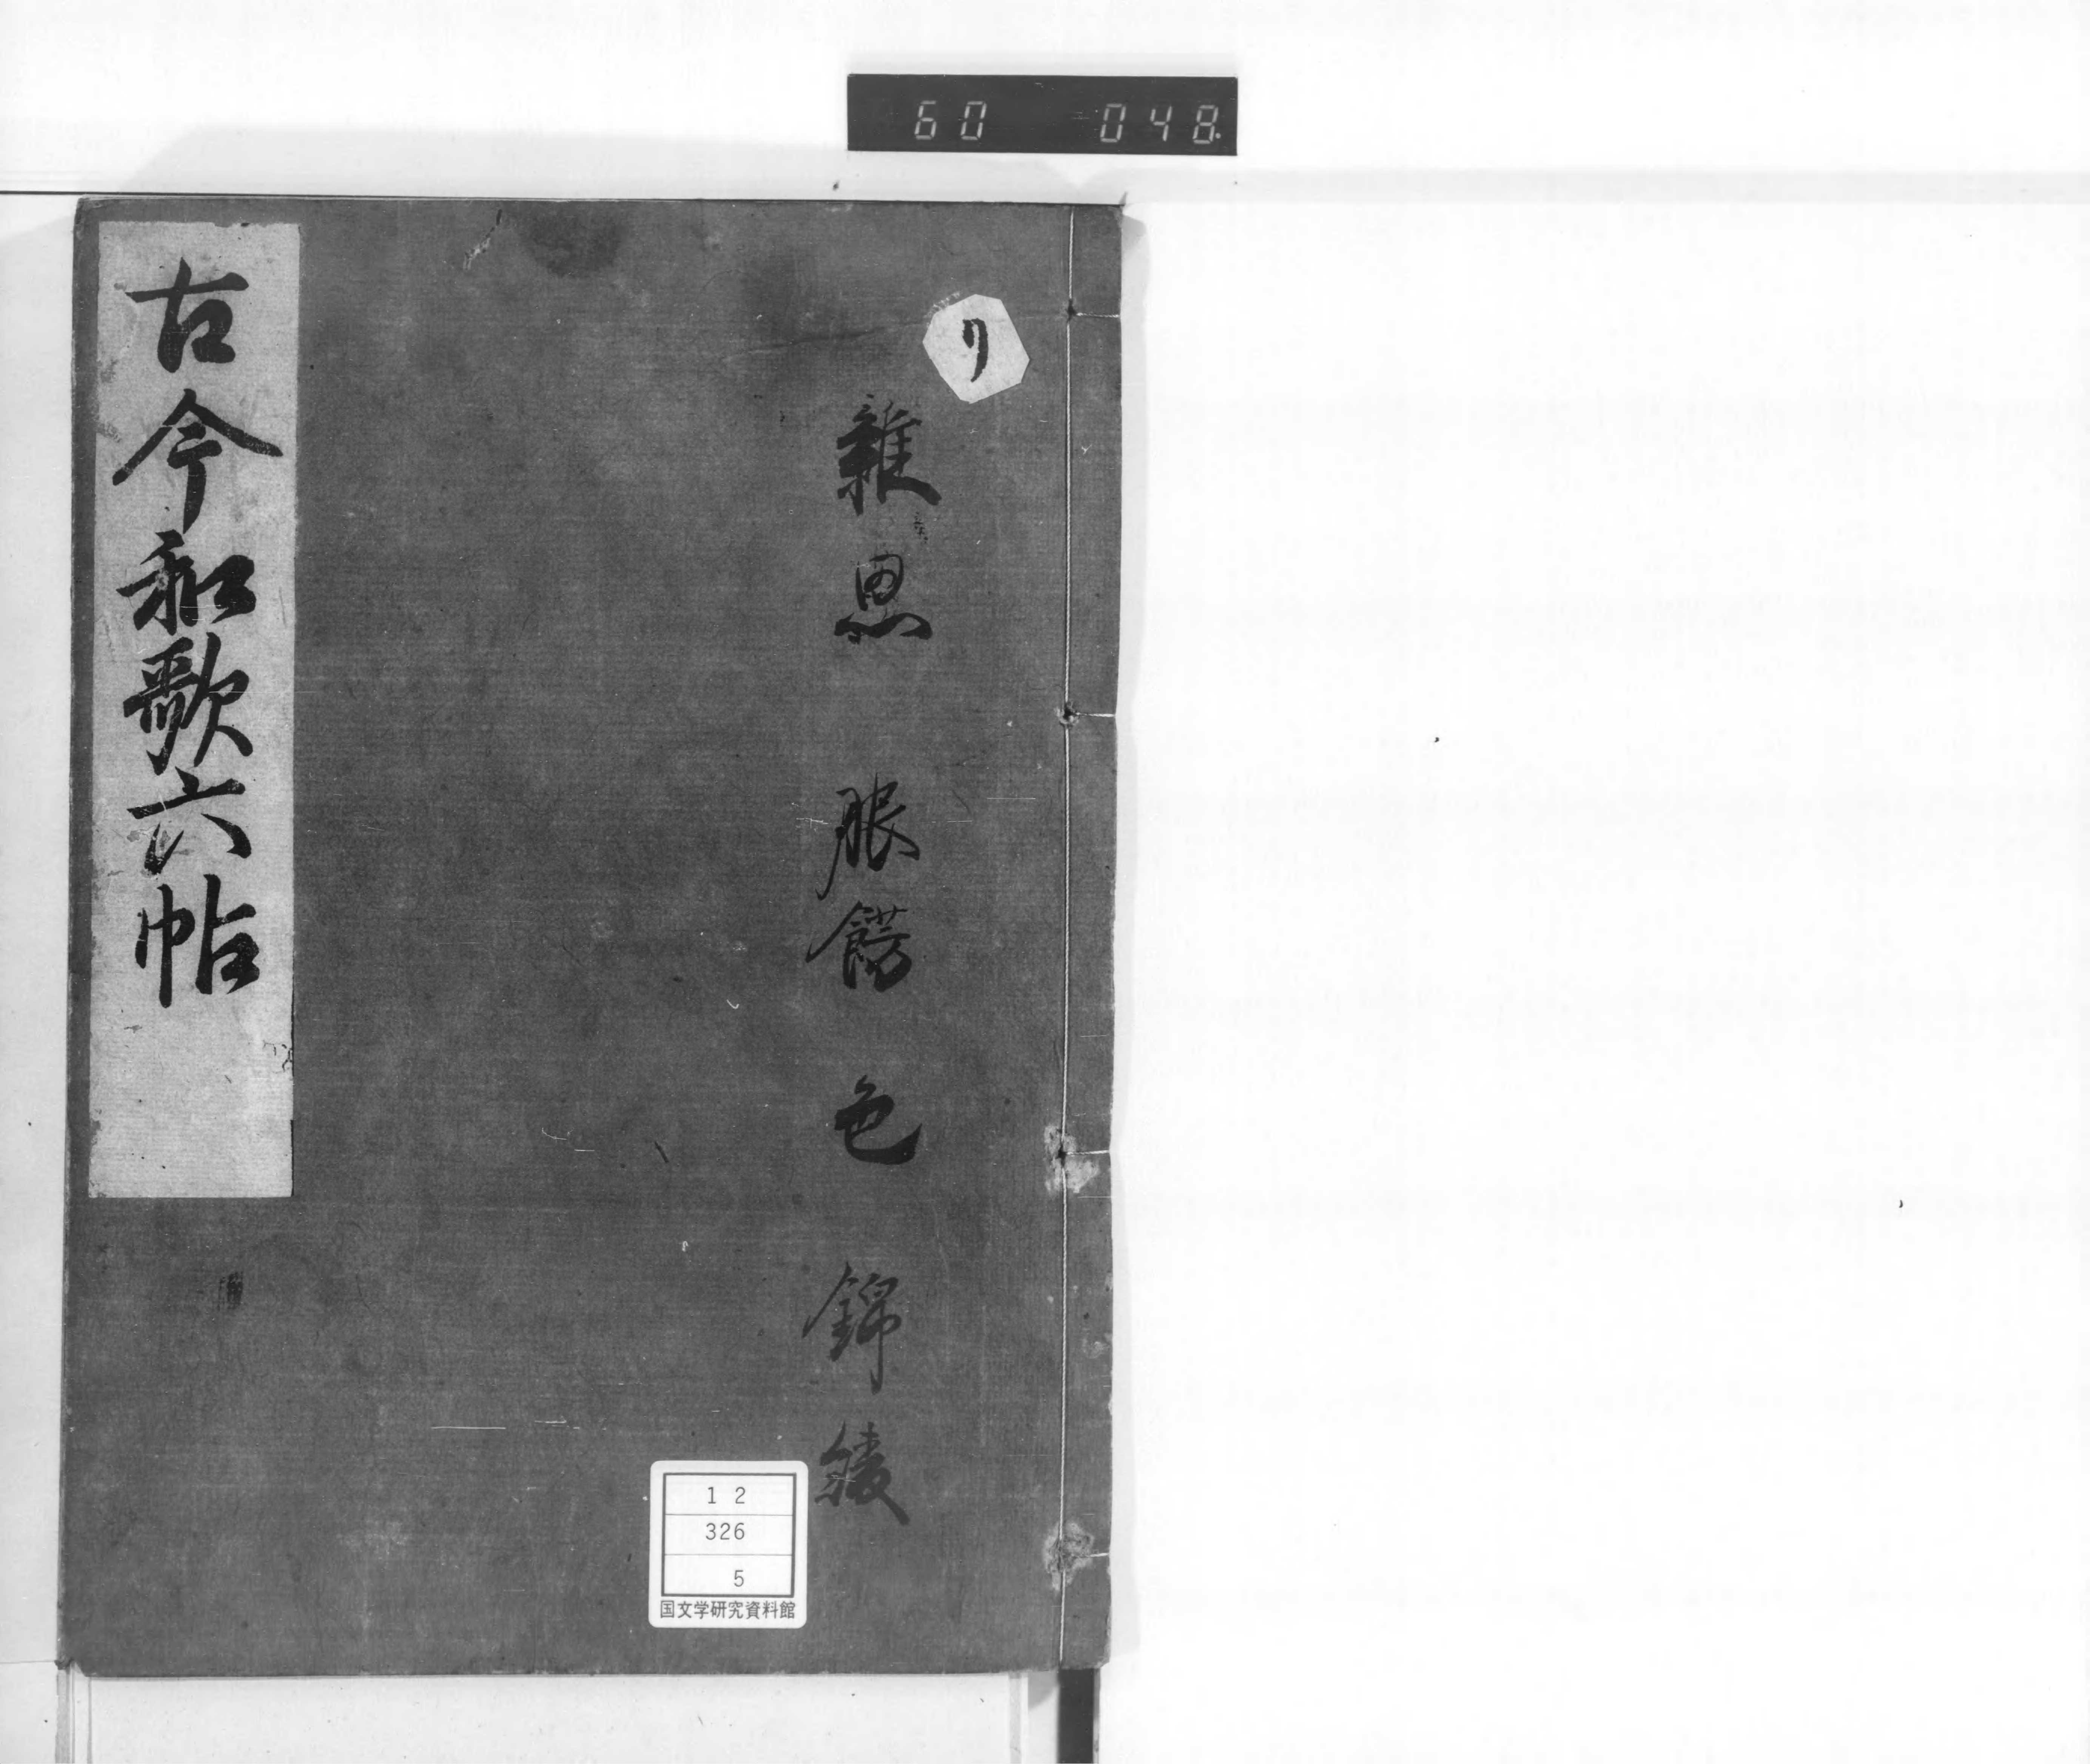 60 048
り
雑思 服餝 色 錦綾
古今和歌六帖
12
326
5
国文学研究資料館